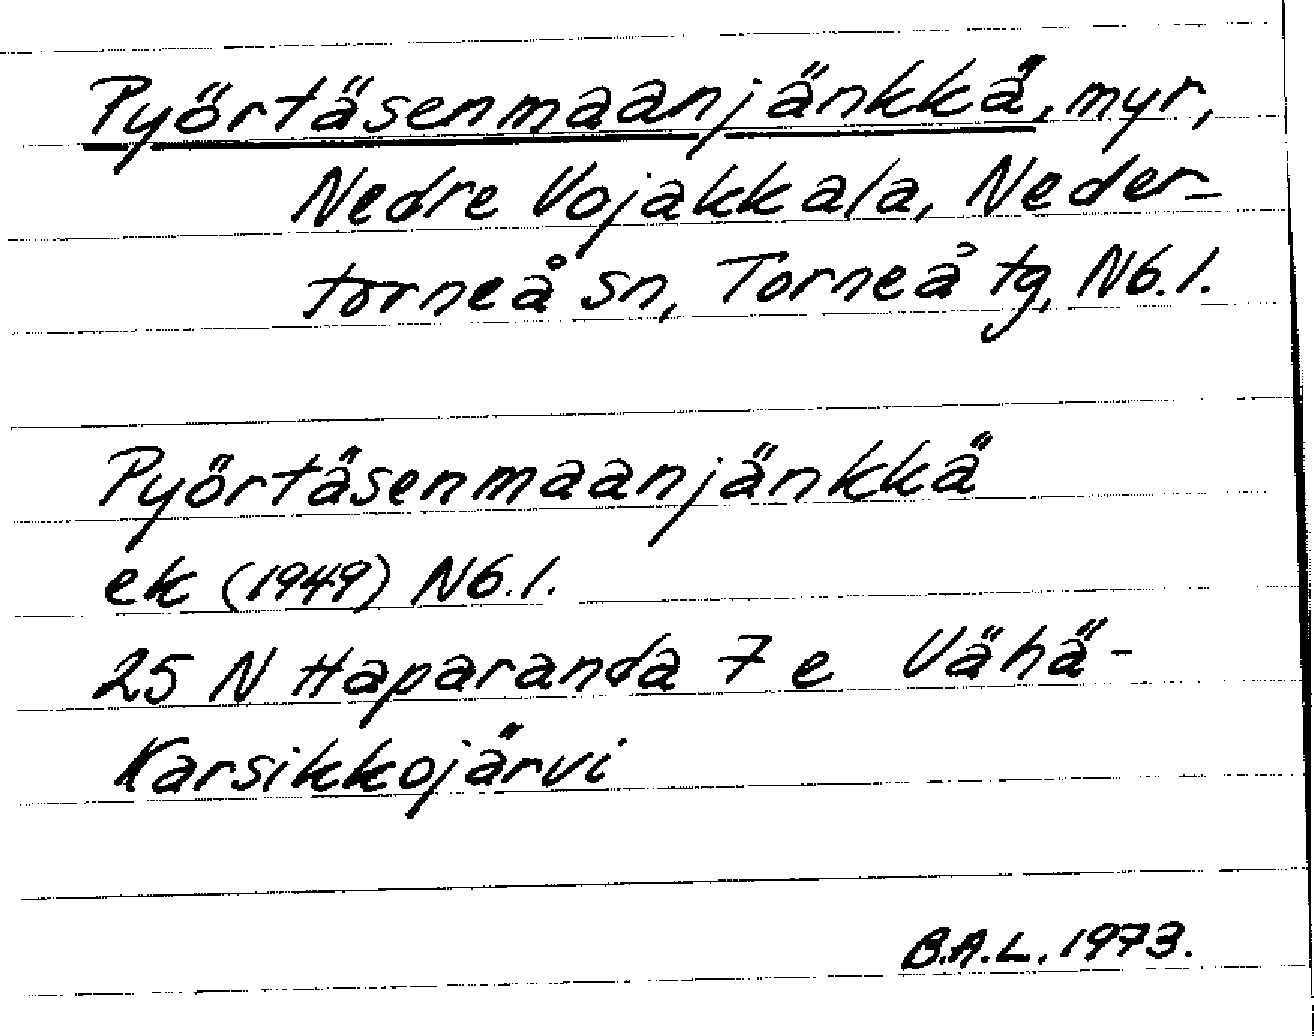 Pyörtäsenmaanjänkkä, myr,
Nedre Vojakkala, Neder-
torneå sn, Torneå tg, Nb.l.
Pyörtäsenmaanjänkkä
ek (1949) Nb.l.
25 N Haparanda 7 e Vähä-
Karsikkojärvi
B.A.L. 1973.